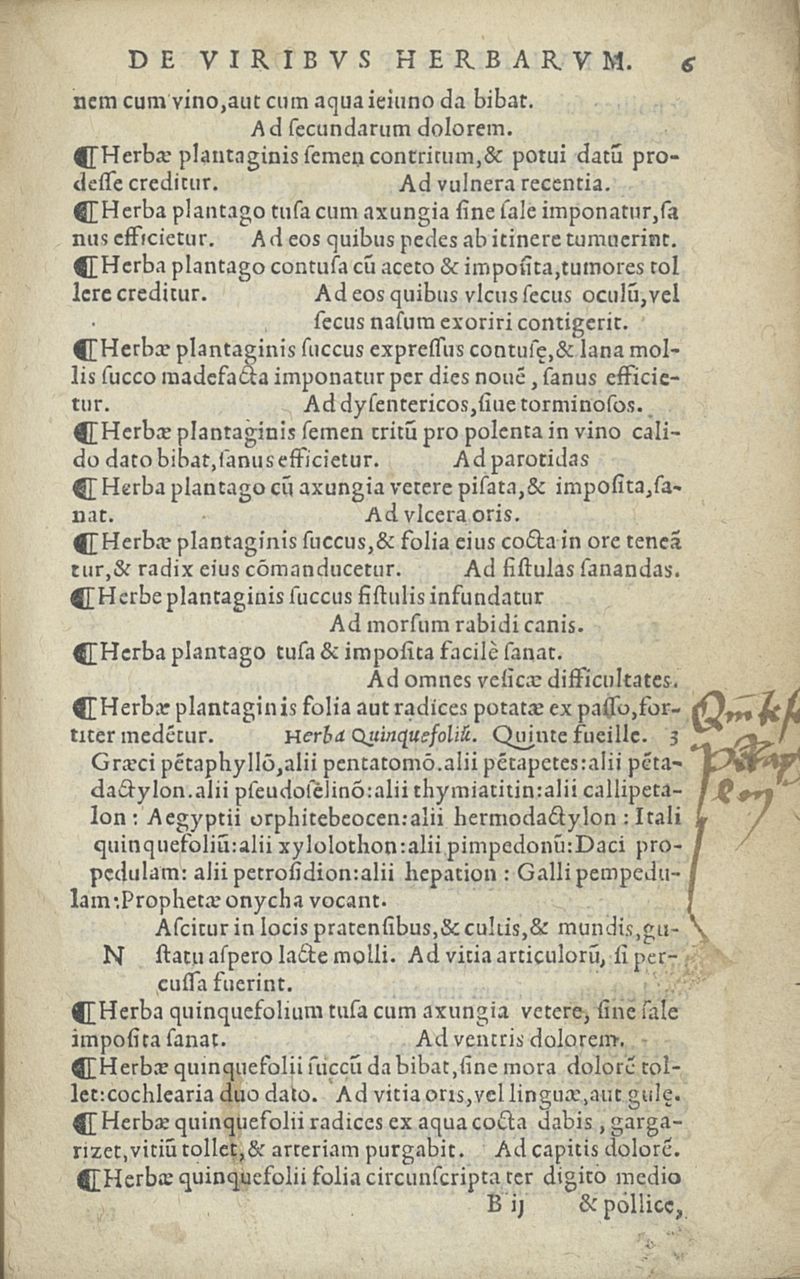 DE VIRIBVS HERBARVM. 6
nem cum vino,aut cum aqua ieiuno da bibat.
Ad ſecundarum dolorem.
¶Herbæ plantaginis ſemen contritum,& potui datū pro-
deſſe creditur. Ad vulnera recentia.
¶Herba plantago tuſa cum axungia ſine ſale imponatur,ſa
nus efficietur. Ad eos quibus pedes ab itinere tumuerint.
¶Herba plantago contuſa cū aceto & impoſita,tumores tol
lere creditur. Ad eos quibus vlcus ſecus oculū,vel
ſecus naſum exoriri contigerit.
¶Herbæ plantaginis ſuccus expreſſus contuſę,& lana mol-
lis ſucco madefacta imponatur per dies nouē, ſanus efficie-
tur. Ad dyſentericos,ſiue torminoſos.
¶Herbæ plantaginis ſemen tritū pro polenta in vino cali-
do dato bibat,ſanus efficietur. Ad parotidas
¶Herba plantago cū axungia vetere piſata,& impoſita,ſa-
nat. Ad vlcera oris.
¶Herbæ plantaginis ſuccus,& folia eius cocta in ore teneā
tur,& radix eius cōmanducetur. Ad fiſtulas ſanandas.
¶Herbe plantaginis ſuccus fiſtulis infundatur
Ad morſum rabidi canis.
¶Herba plantago tuſa & impoſita facilè ſanat.
Ad omnes veſicæ difficultates.
¶Herbæ plantaginis folia aut radices potatæ ex paſſo,for-
titer medētur. Herba Quinquefoliū. Quinte fueille. 3
Græci pētaphyllō,alii pentatomō.alii pētapetes:alii pēta-
dactylon.alii pſeudoſelinō:alii thymiatitin:alii callipeta-
lon : Aegyptii orphitebeocen:alii hermodactylon : Itali
quinquefoliū:alii xylolothon:alii pimpedonū:Daci pro-
pedulam: alii petroſidion:alii hepation : Galli pempedu-
lam:Prophetæ onycha vocant.
Aſcitur in locis pratenſibus,& cultis,& mundis,gu-
N ſtatu aſpero lacte molli. Ad vitia articulorū, ſi per-
cuſſa fuerint.
¶Herba quinquefolium tuſa cum axungia vetere, ſine ſale
impoſita ſanat. Ad ventris dolorem.
¶Herbæ quinquefolii ſuccū da bibat,ſine mora dolorē tol-
let:cochlearia duo dato. Ad vitia oris,vel linguæ,aut gulę.
¶Herbæ quinquefolii radices ex aqua cocta dabis , garga-
rizet,vitiū tollet,& arteriam purgabit. Ad capitis dolorē.
¶Herbæ quinquefolii folia circunſcripta ter digito medio
B ij & pollice,